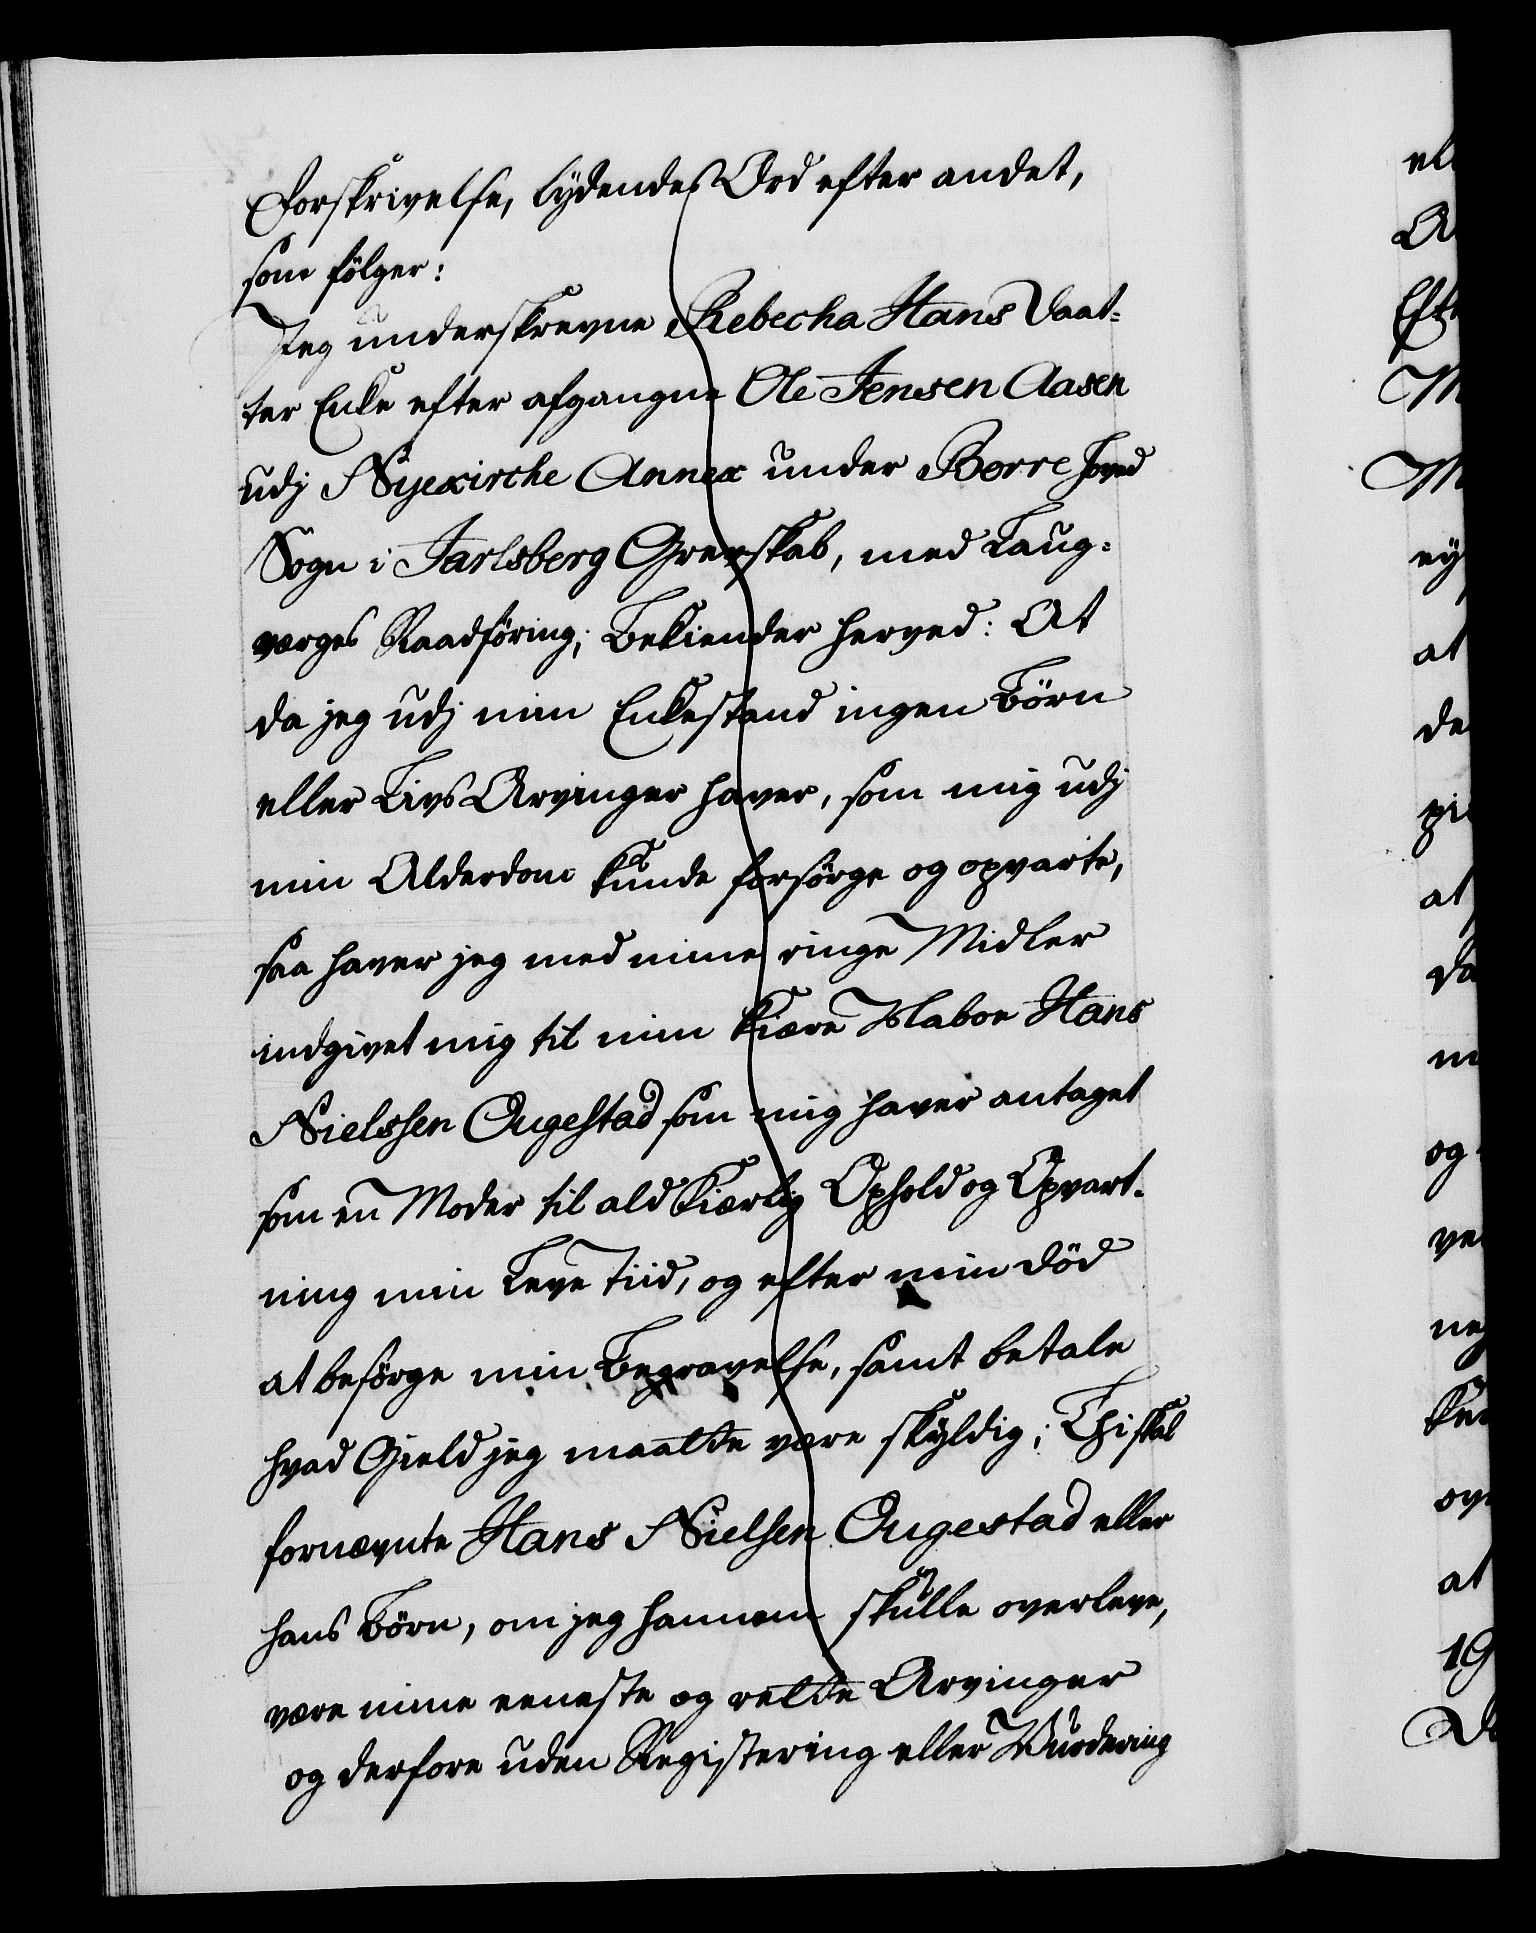 Forskrivelse, lydendes Ord efter andet,
som fölger:
Jeg underskrevne Rebecha Hans Daat-
ter Enke efter afgangne Ole Jensen Aasen
udj Nyekirche Annex under Borre Hoved
Sogn i Jarlsberg Grevskab, med Laug-
værges Raadföring; Bekiender herved: At
da jeg udj min Enkestand ingen Börn
eller Livs Arvinger haver, som mig udj
min Alderdom kunde forsörge og opvarte,
saa haver jeg med mine ringe Midler
indgivet mig til min kiære Naboe Hans
Nielssen Ougestad som mig haver antaget
som en Moder til ald kiærlig Ophold og Opvart-
ning min Leve Tiid, og efter min Död
at besörge min Begravelse, samt betale
hvad Gield jeg maatte være skyldig; Thi skal
fornævnte Hans Nielsen Ougestad eller
hans Börn, om jeg hannem skulle overleve,
være mine eeneste og rette Arvinger
og derfore uden Registering eller Wurdering